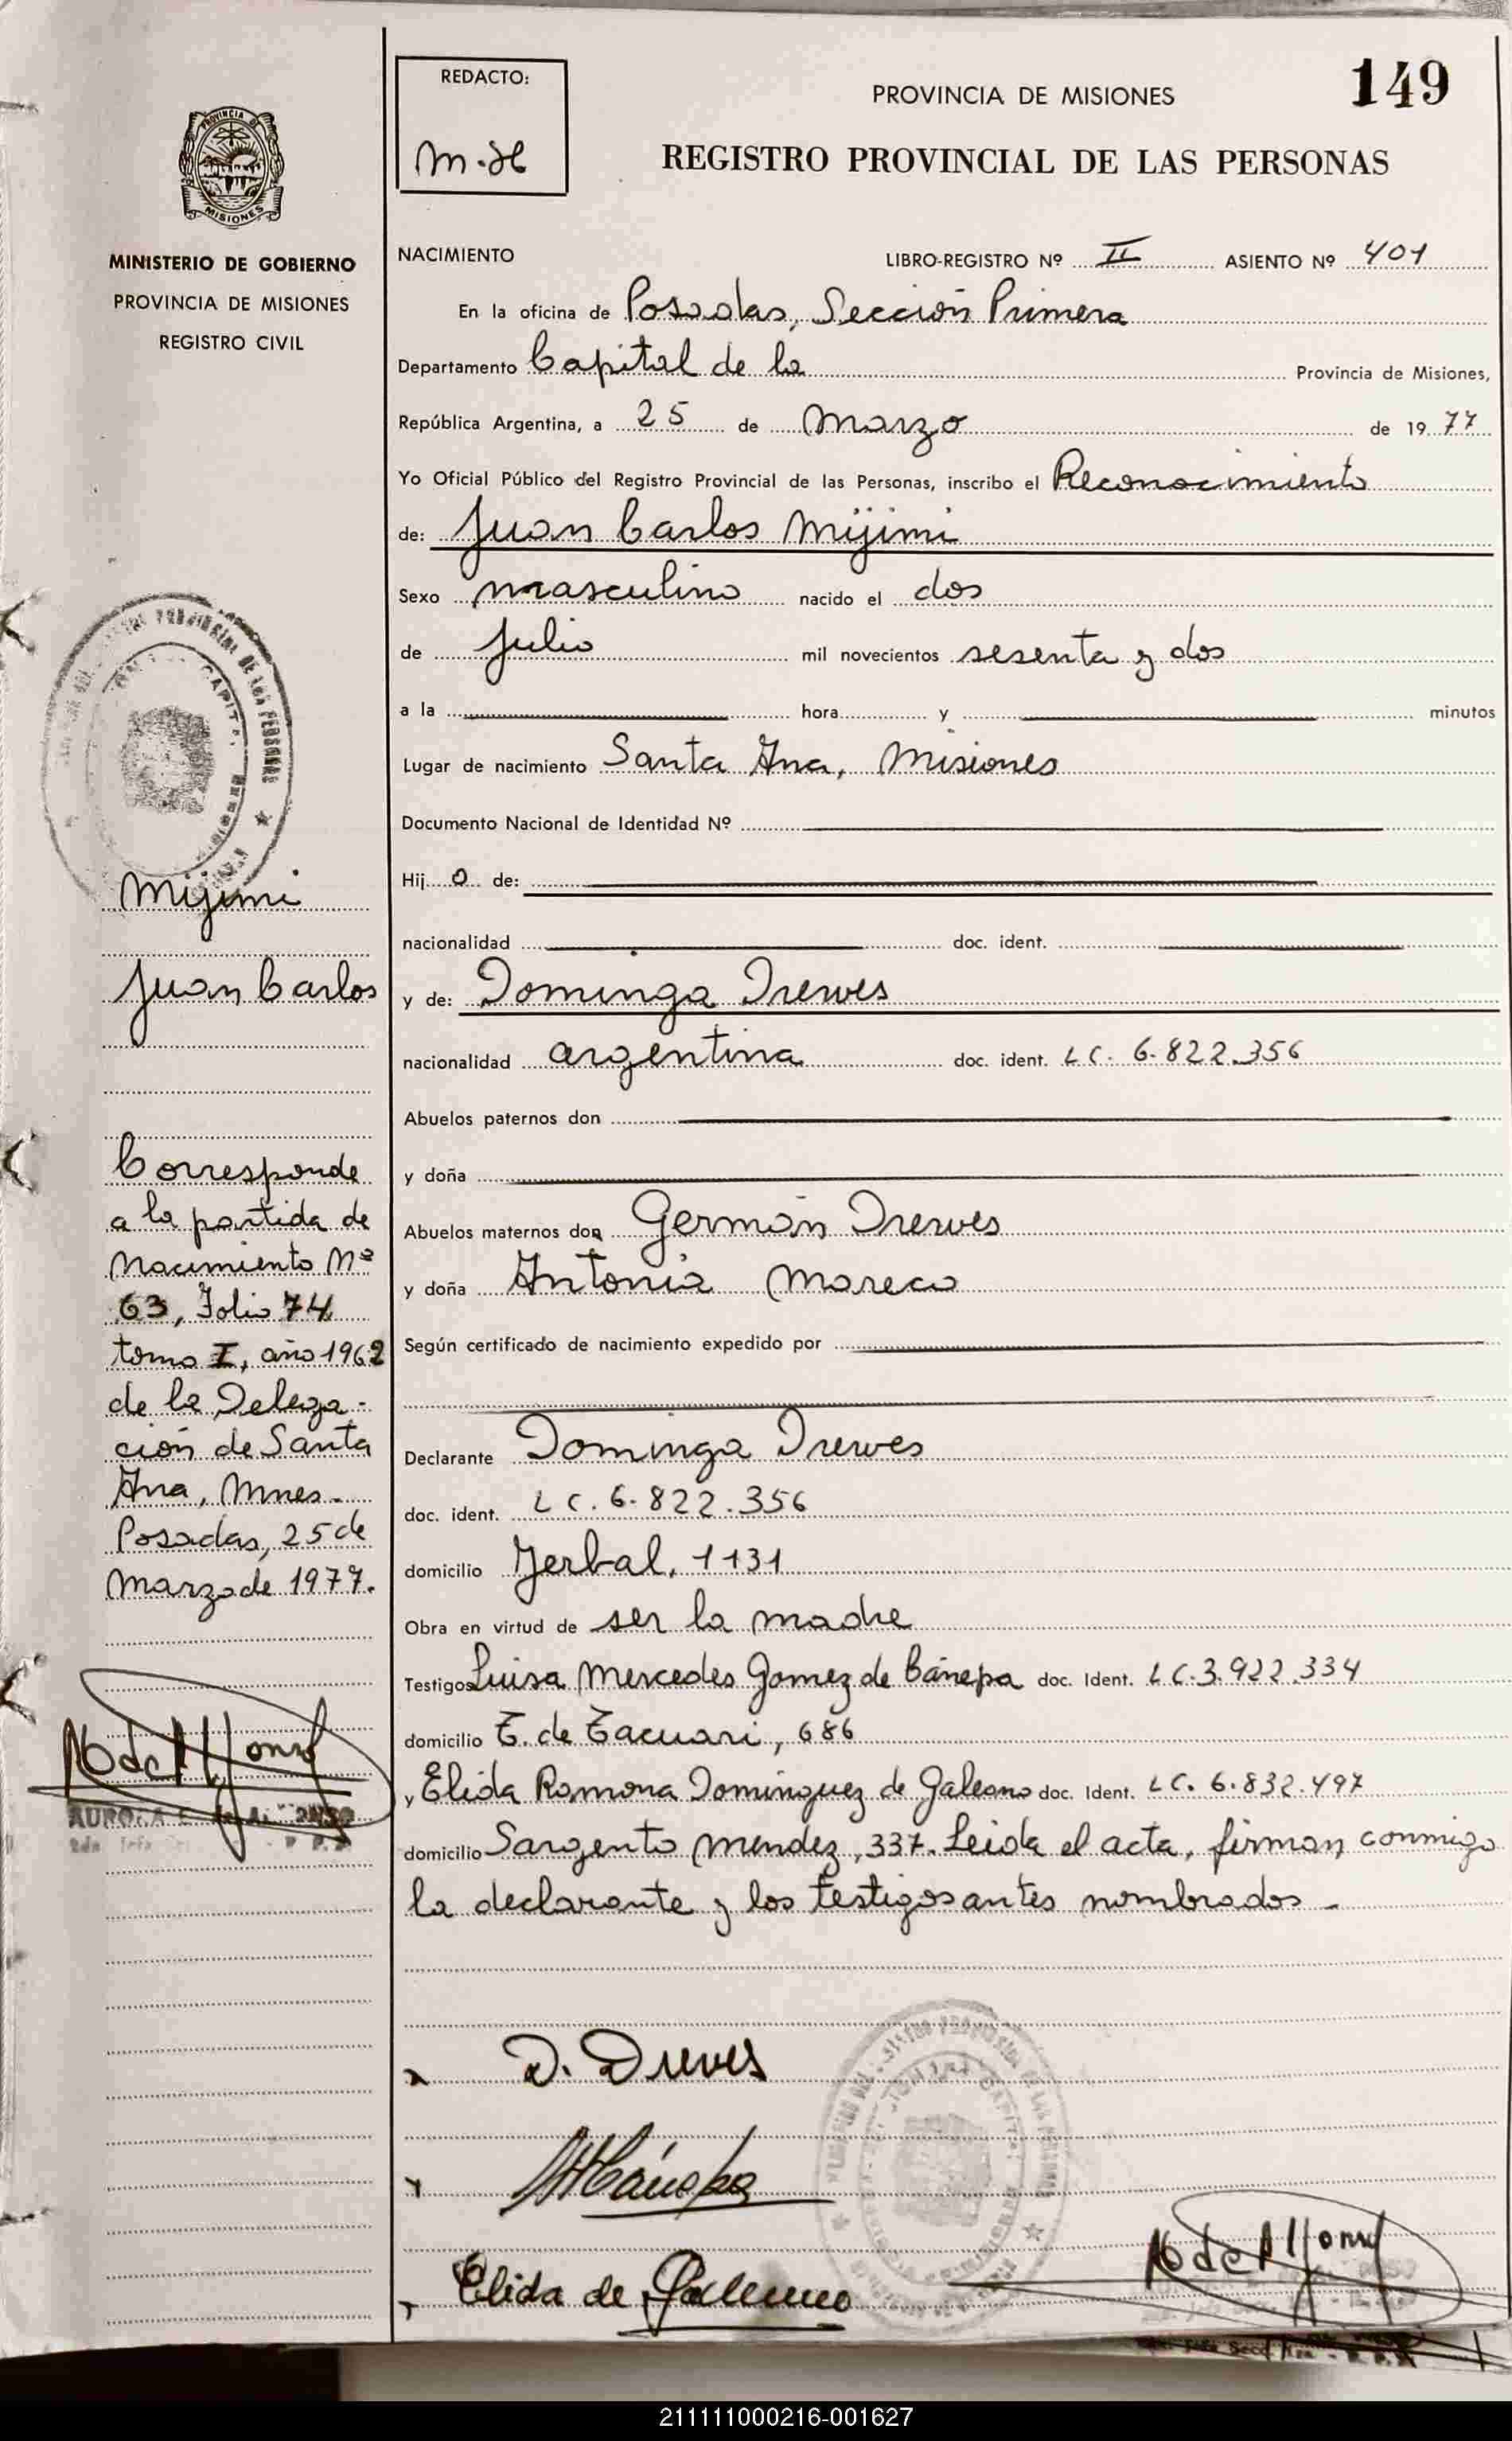 REDACTO:
m.H
PROVINCIA DE MISIONES
149
REGISTRO PROVINCIAL DE LAS PERSONAS
PROVINCIA DE
MISIONES
MINISTERIO DE GOBIERNO
PROVINCIA DE MISIONES
REGISTRO CIVIL
NACIMIENTO
LIBRO-REGISTRO Nº II ASIENTO Nº 401
En la oficina de Posadas, Sección Primera
Departamento Capital de la Provincia de Misiones,
República Argentina, a 25 de Marzo de 1977
Yo Oficial Público del Registro Provincial de las Personas, inscribo el Reconocimiento
de: Juan Carlos Mijimi
Sexo masculino nacido el dos
de Julio mil novecientos sesenta y dos
a la hora y minutos
Lugar de nacimiento Santa Ana, Misiones
Documento Nacional de Identidad Nº
Hijo de:
nacionalidad doc. ident.
y de: Dominga Drewes
nacionalidad argentina doc. ident. LC. 6.822.356
Abuelos paternos don
y doña
Abuelos maternos don Germán Drewes
y doña Antonia Moreco
Según certificado de nacimiento expedido por
Declarante Dominga Drewes
doc. ident. LC. 6.822.356
domicilio Yerbal, 1131
Obra en virtud de ser la madre
Testigos Luisa Mercedes Gomez de Cánepa doc. Ident. LC. 3.922.334
domicilio T. de Tacuari, 686
y Elida Ramona Dominguez de Galeano doc. Ident. LC. 6.832.497
domicilio Sargento Mendez, 337. Leida el acta, firman conmigo
la declarante y los testigos antes nombrados.
Mijimi
Juan Carlos
Corresponde
a la partida de
Nacimiento Nº
63, Folio 74
tomo I, año 1962
de la Delega-
ción de Santa
Ana, Mnes.
Posadas, 25 de
Marzo de 1977.
D. Dreves
Elida de Galeano
211111000216-001627